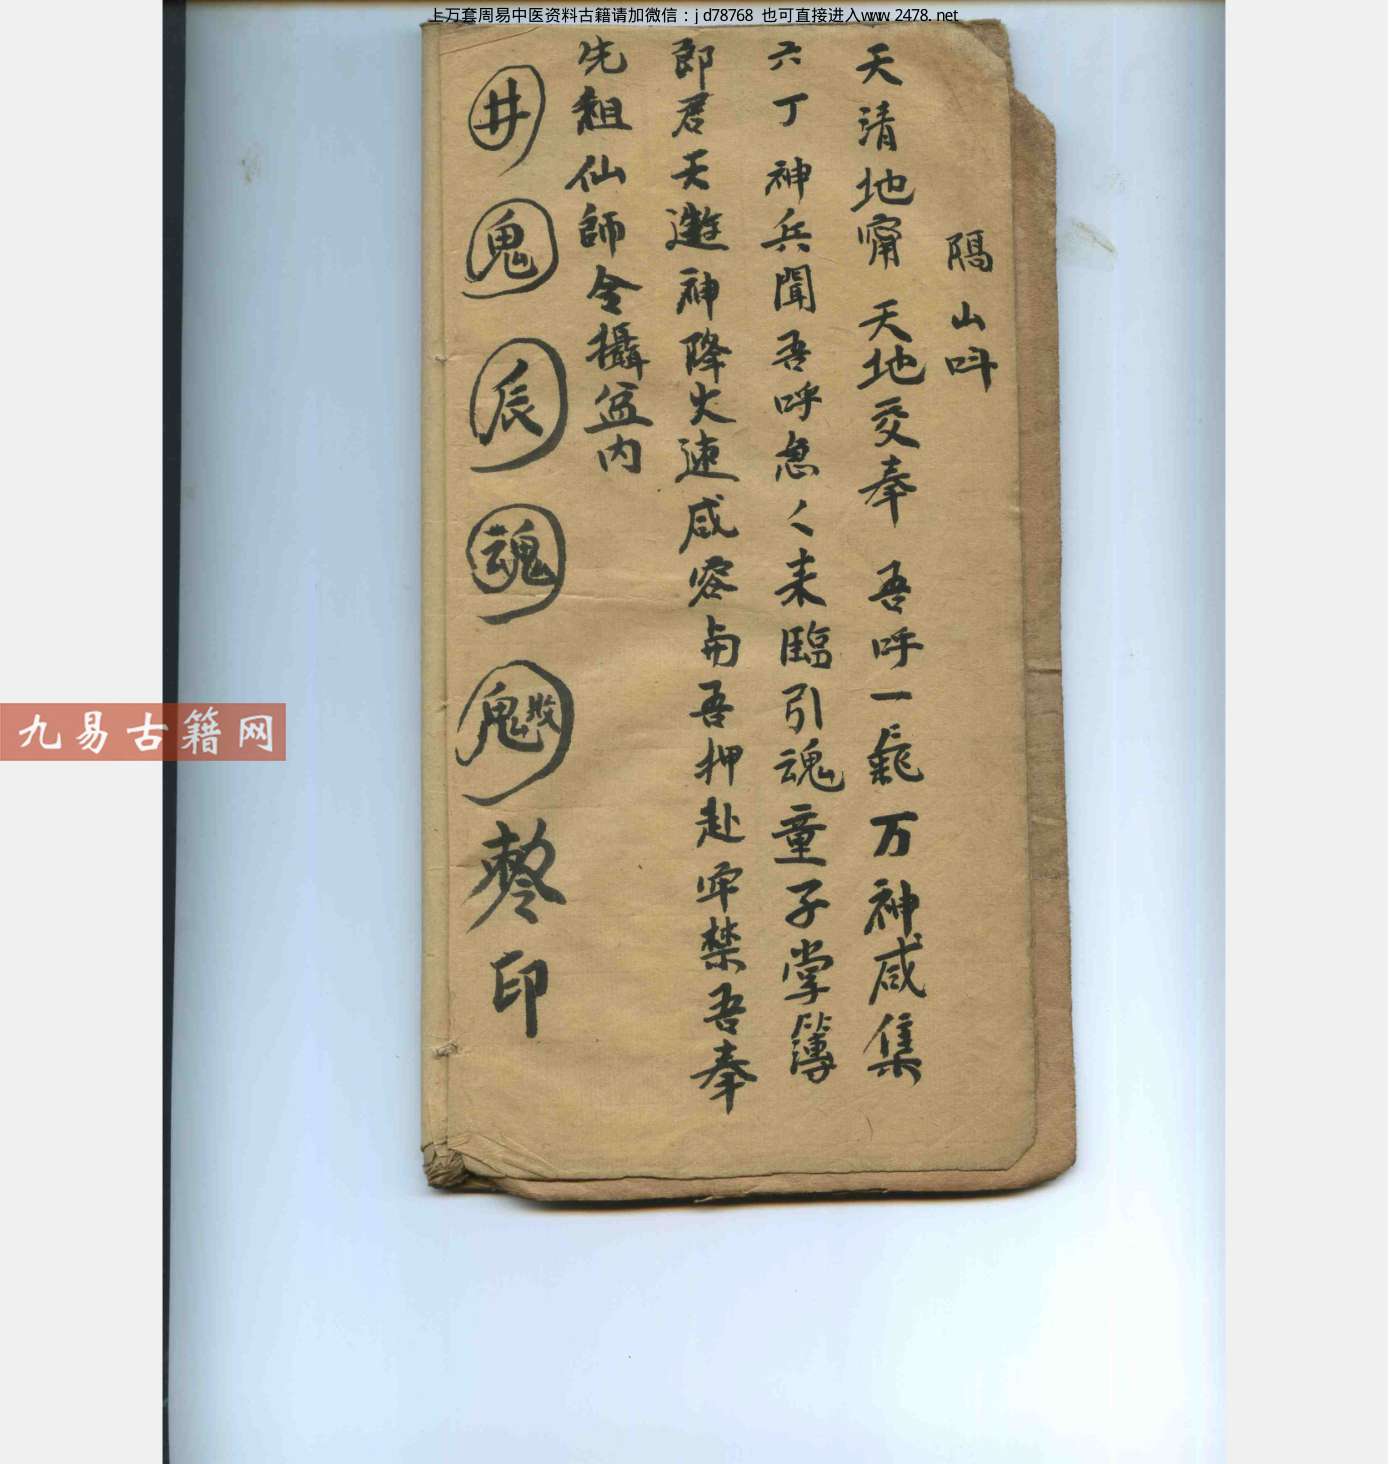 上万套周易中医资料古籍请加微信：jd78768 也可直接进入www.2478.net
隔山呌
天清地甯 天地交泰 吾呼一 万神咸集
六丁神兵聞吾呼急く来臨引魂童子掌簿
郎君天遊神降火速咸容与吾押赴牢禁吾奉
先祖仙師令攝盆内
井 鬼 辰 魂 印
九易古籍网